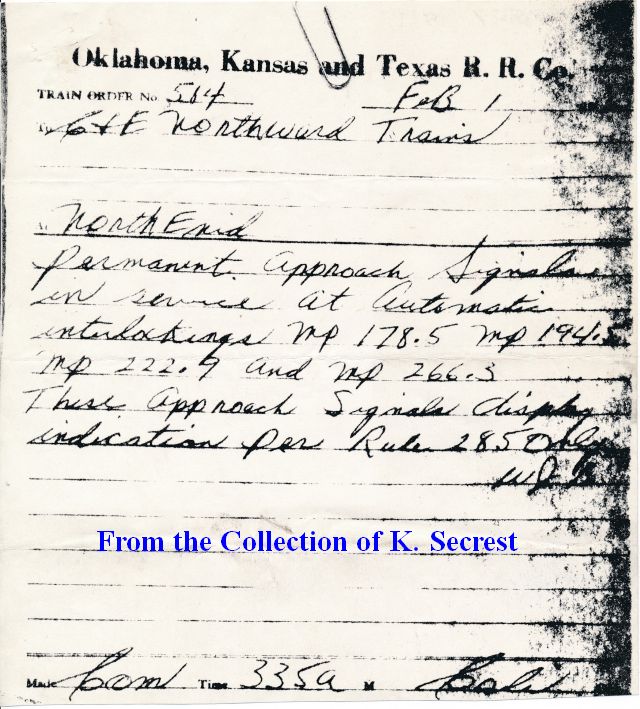 Oklahoma, Kansas and Texas R. R. Co.
TRAIN ORDER No. 504 Feb 1
To C+E Northward Trains
At North Enid
Permanent Approach Signals
in service at Automatic
interlockings MP 178.5 MP 194.5
MP 222.9 and MP 266.3
These Approach Signals display
indication per Rule 285 Only
From the Collection of K. Secrest
Made Com Time 335a M